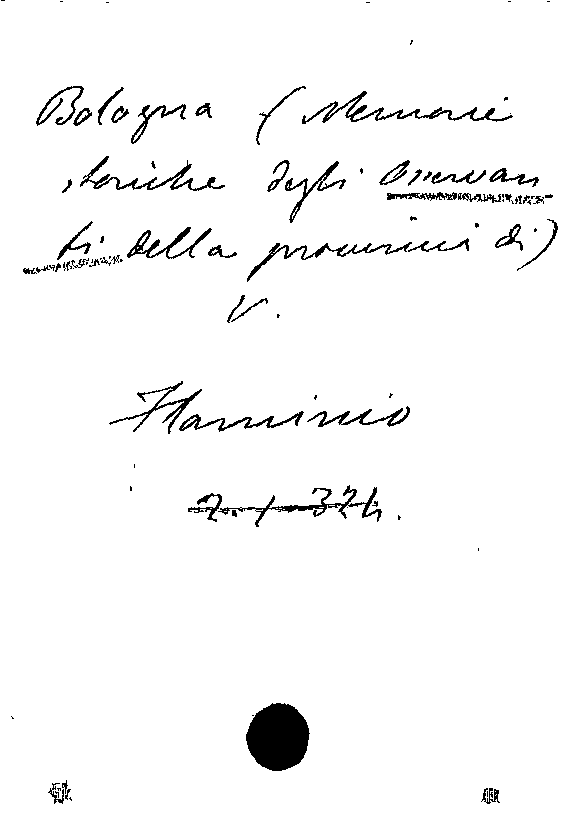 Bologna (Memorie
storiche degli Osservan
ti della provincia di)
V.
Flaminio
2. 1 324.